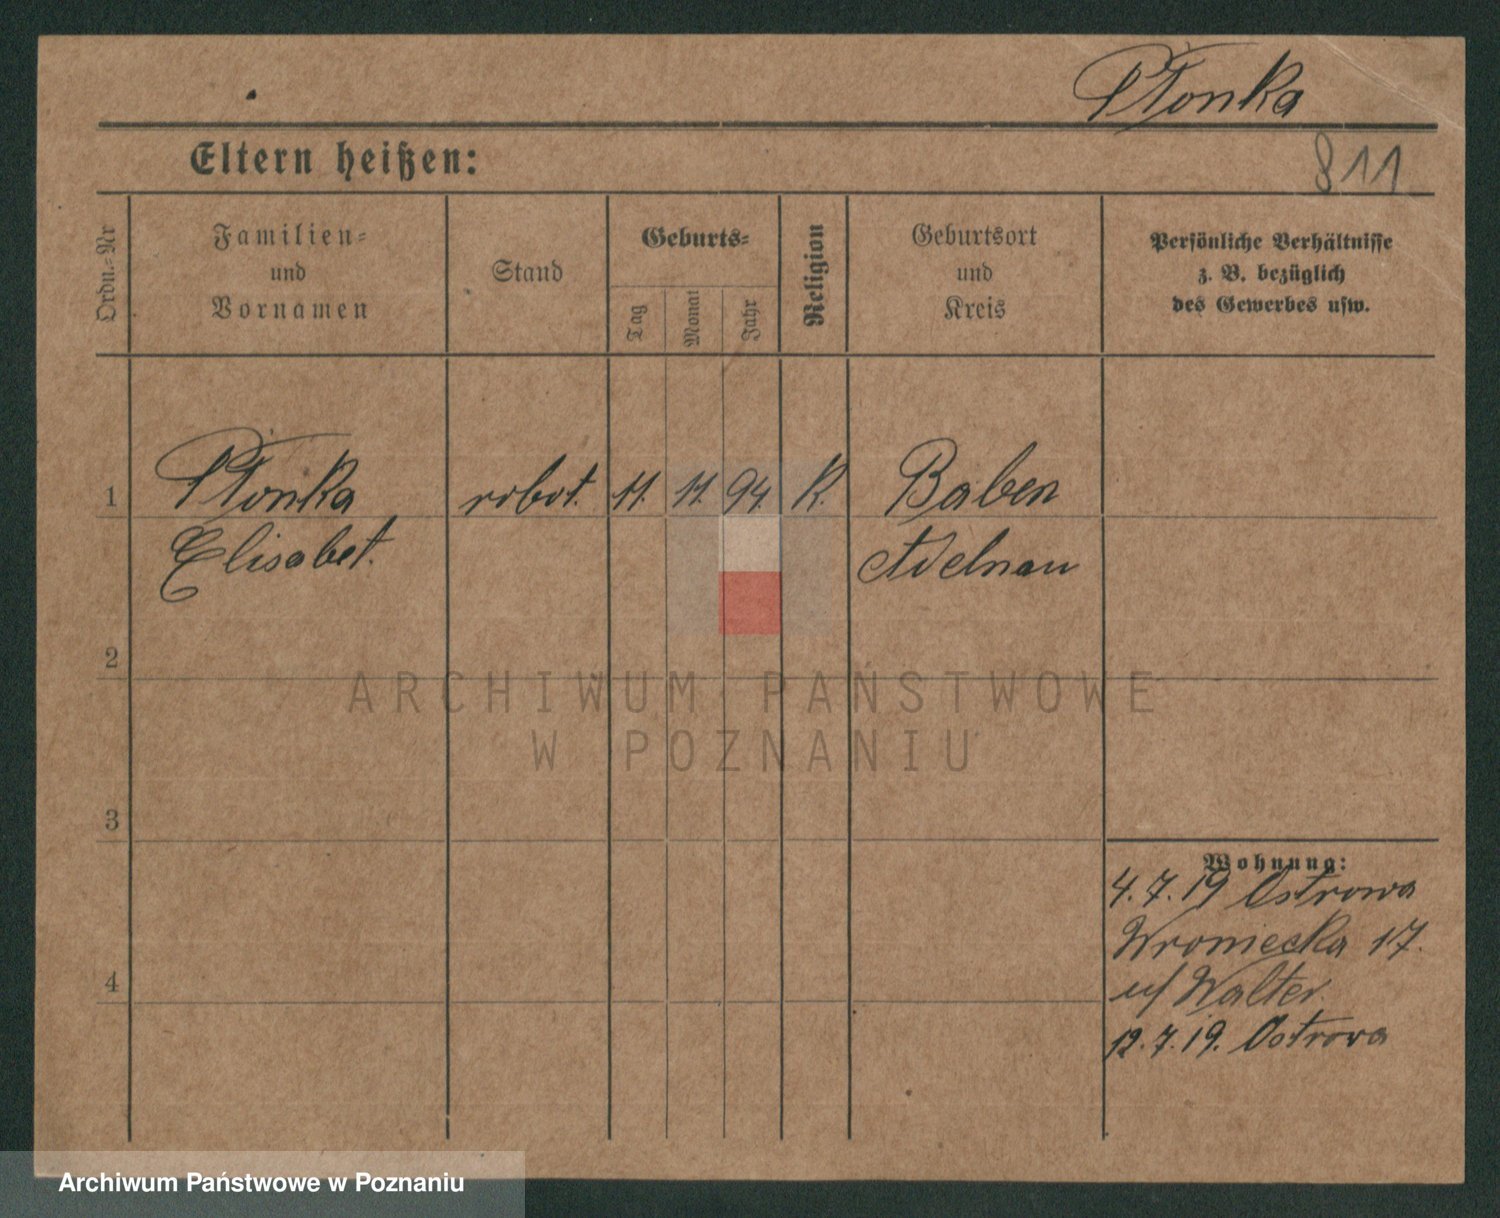 Płonka
Eltern heißen:
811
Ordn.=Nr
Familien=
und
Vornamen
Stand
Geburts=
Tag
Monat
Jahr
Religion
Geburtsort
und
Kreis
Persönliche Verhältnisse
z. B. bezüglich
des Gewerbes usw.
1
Płonka
robot.
11.
11.
94.
K.
Baben
Elisabet.
Adelnau
2
ARCHIWUM PAŃSTWOWE
W POZNANIU
3
Wohnung:
4.7.19 Ostrowa
Wroniecka 17.
u/ Walter.
4
12.7.19. Ostrowa
Archiwum Państwowe w Poznaniu